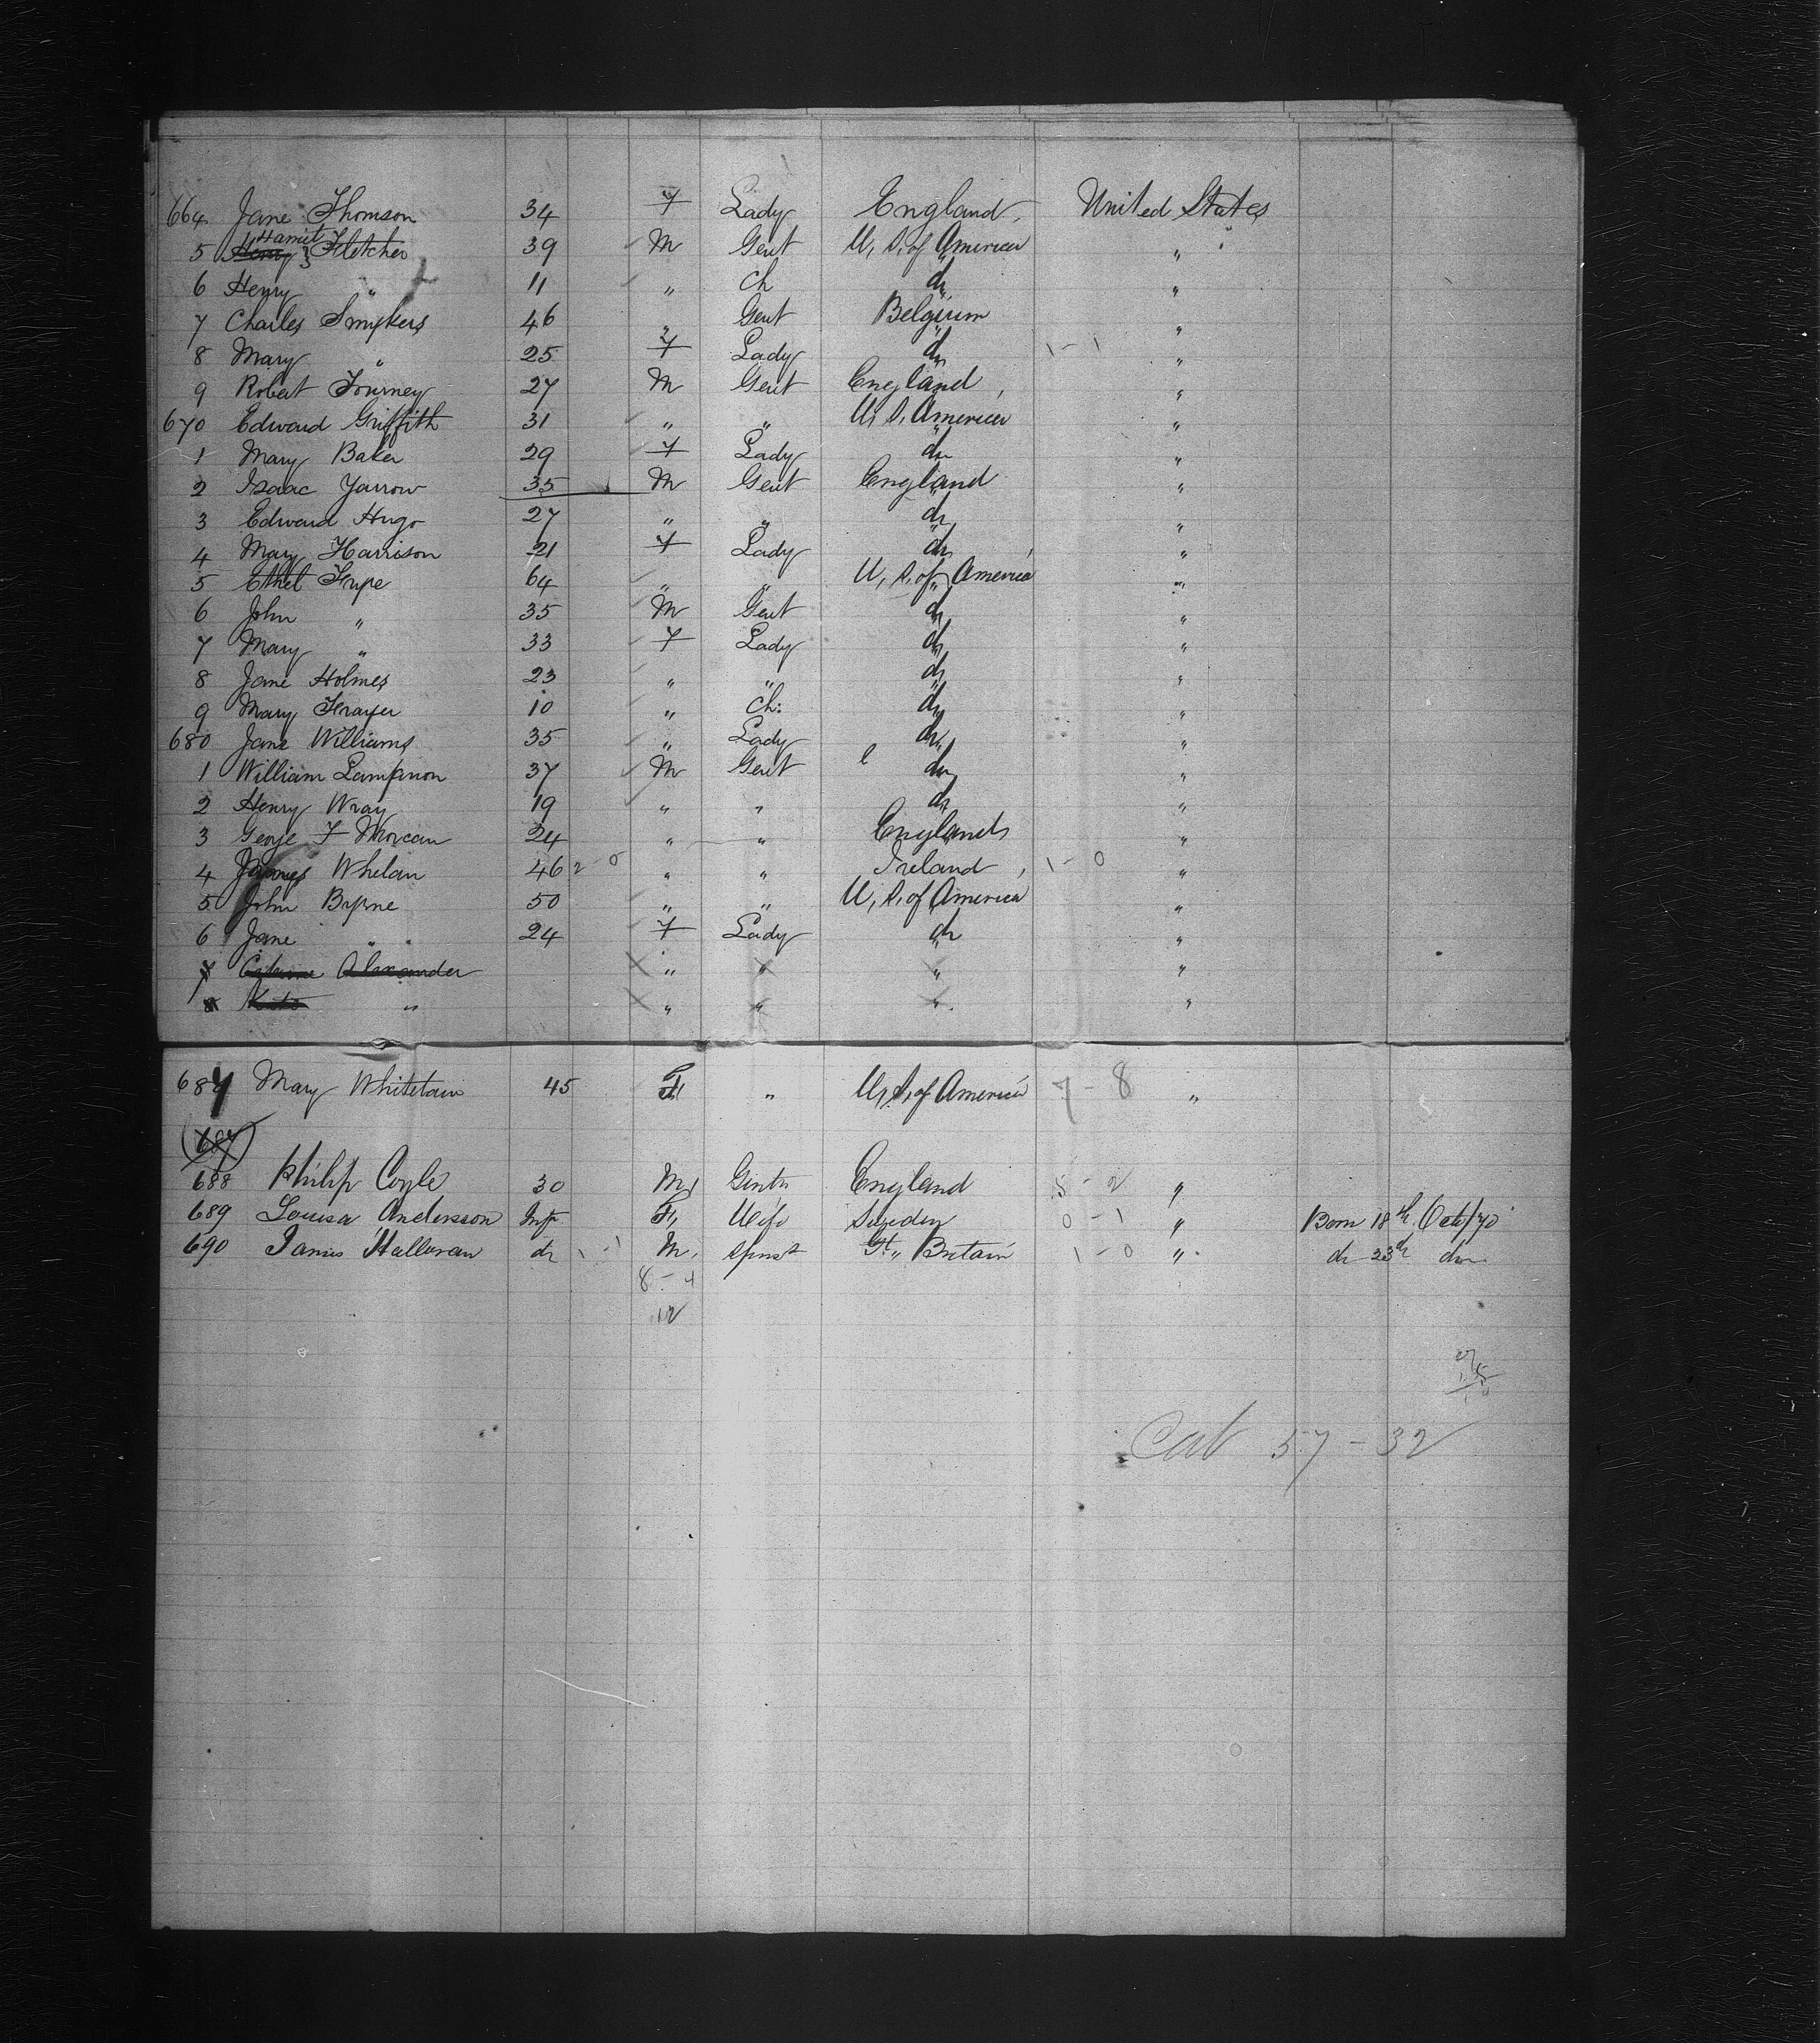 664 Jane Thomson 34 F Lady England United States
5 Harriet Fletcher 39 M Gent U, S, of America "
6 Henry " 11 " Ch do "
7 Charles Smykers 46 " Gent Belgium "
8 Mary " 25 F Lady do 1-1 "
9 Robert 27 M Gent England "
670 Edward Griffith 31 " " U, S, America "
1 Mary Baker 29 F Lady do "
2 Isaac Yarrow 35 M Gent England "
3 Edward Hugo 27 " " do "
4 Mary Harrison 21 F Lady do "
5 Ethel 64 " " U, S, of America "
6 John " 35 M Gent do "
7 Mary " 33 F Lady do "
8 Jane Holmes 23 " " do "
9 Mary 10 " Ch: do "
680 Jane Williams 35 " Lady do "
1 William 37 M Gent do "
2 Henry Wray 19 " " do "
3 George F 24 " " England "
4 James Whelan 46 2-0 " " Ireland 1-0 "
5 John Byrne 50 " " U, S, of America "
6 Jane " 24 F Lady do "
7 Alexander " " " "
8 Kate " " " " "
687 Mary 45 F " U, S, of America 7-8 "
687
688 Philip Coyle 30 M Gentn England 5-2 "
689 Louisa Andersson Inft F, Wife Sweden 0-1 " Born 18th Octo/70
690 James Halloran do 1-1 M, Spinst Gt,, Britain 1-0 " do 23d do
8-4
12
Cat 57-32